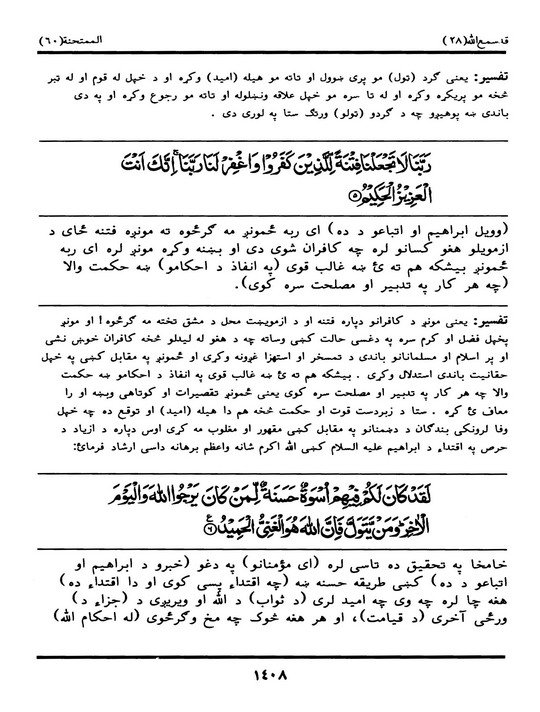 قد سمع الله(۲۸) الممتحنة(۶۰)
تفسیر: یعنی گرد (تول) مو پری ښوول او تاته مو هیله (امید) وکړه او د خپل له قوم او له تبر
څخه مو پریکړه وکړه او له تا سره مو خپل علاقه ونښلوله او تاته مو رجوع وکړه او په دی
باندی ښه پوهیږو چه د گردو (تولو) ورتگ ستا په لوری دی .
رَبَّنَا لَا تَجْعَلْنَا فِتْنَةً لِّلَّذِيْنَ كَفَرُوْا وَاغْفِرْ لَنَا رَبَّنَا ۚ اِنَّكَ اَنْتَ
الْعَزِيْزُ الْحَكِيْمُ ۵
(وویل ابراهیم او اتباعو د ده) ای ربه ځمونږ مه گرځوه ته مونږه فتنه ځای د
ازمویلو هغو کسانو لره چه کافران شوی دی او بښنه وکړه مونږ لره ای ربه
ځمونږ بیشکه هم ته ئ ښه غالب قوی (په انفاذ د احکامو) ښه حکمت والا
(چه هر کار په تدبیر او مصلحت سره کوی).
تفسیر: یعنی مونږ د کافرانو دپاره فتنه او د ازموینت محل د مشق تخته مه گرځوه! او مونږ
پخپل فضل او کرم سره په دغسی حالت کښی وساته چه د هغو له لیدلو څخه کافران خوښ نشی
او پر اسلام او مسلمانانو باندی د تمسخر او استهزا غږونه وکړی او ځمونږ په مقابل کښی په خپل
حقانیت باندی استدلال وکړی . بیشکه هم ته ئ ښه غالب قوی په انفاذ د احکامو ښه حکمت
والا چه هر کار په تدبیر او مصلحت سره کوی یعنی ځمونږ تقصیرات او کوتاهی وبښه او را
معاف ئ کړه . ستا د زبردست قوت او حکمت څخه هم دا هیله (امید) او توقع ده چه خپل
وفا لرونکی بندگان د دښمنانو په مقابل کښی مقهور او مغلوب مه کړی اوس دپاره د ازیاد د
حرص په اقتداء د ابراهیم علیه السلام کښی الله اکرم شانه واعظم برهانه داسی ارشاد فرمائ:
لَقَدْ كَانَ لَكُمْ فِيْهِمْ اُسْوَةٌ حَسَنَةٌ لِّمَنْ كَانَ يَرْجُوا اللّٰهَ وَالْيَوْمَ
الْاٰخِرَ ؕ وَمَنْ يَّتَوَلَّ فَاِنَّ اللّٰهَ هُوَ الْغَنِىُّ الْحَمِيْدُ ۶
خامخا په تحقیق ده تاسی لره (ای مؤمنانو) په دغو (خبرو د ابراهیم او
اتباعو د ده) کښی طریقه حسنه ښه (چه اقتداء پسی کوی او دا اقتداء ده)
هغه چا لره چه وی چه امید لری (د ثواب) د الله او ویریږی د (جزاء د)
ورځی آخری (د قیامت)، او هر هغه څوک چه مخ وگرځوی (له احکام الله)
۱۴۰۸